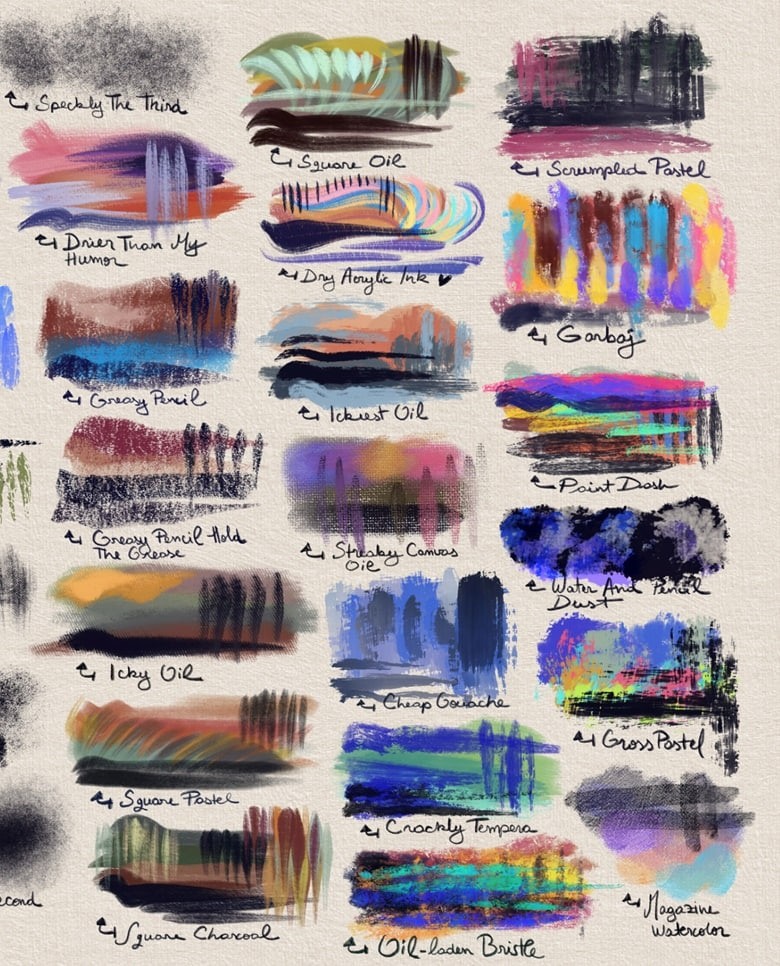 Speckly The Third
Drier Than My
Humor
Greasy Pencil
Greasy Pencil Hold
The Grease
Icky Oil
Square Pastel
Square Charcoal
econd
Square Oil
Dry Acrylic Ink
Ickiest Oil
Streaky Canvas
Oil
Cheap Gouache
Crackly Tempera
Oil-laden Bristle
Scrumpled Pastel
Garbaj
Paint Dash
Water And Pencil
Dust
Gross Pastel
Magazine
Watercolor